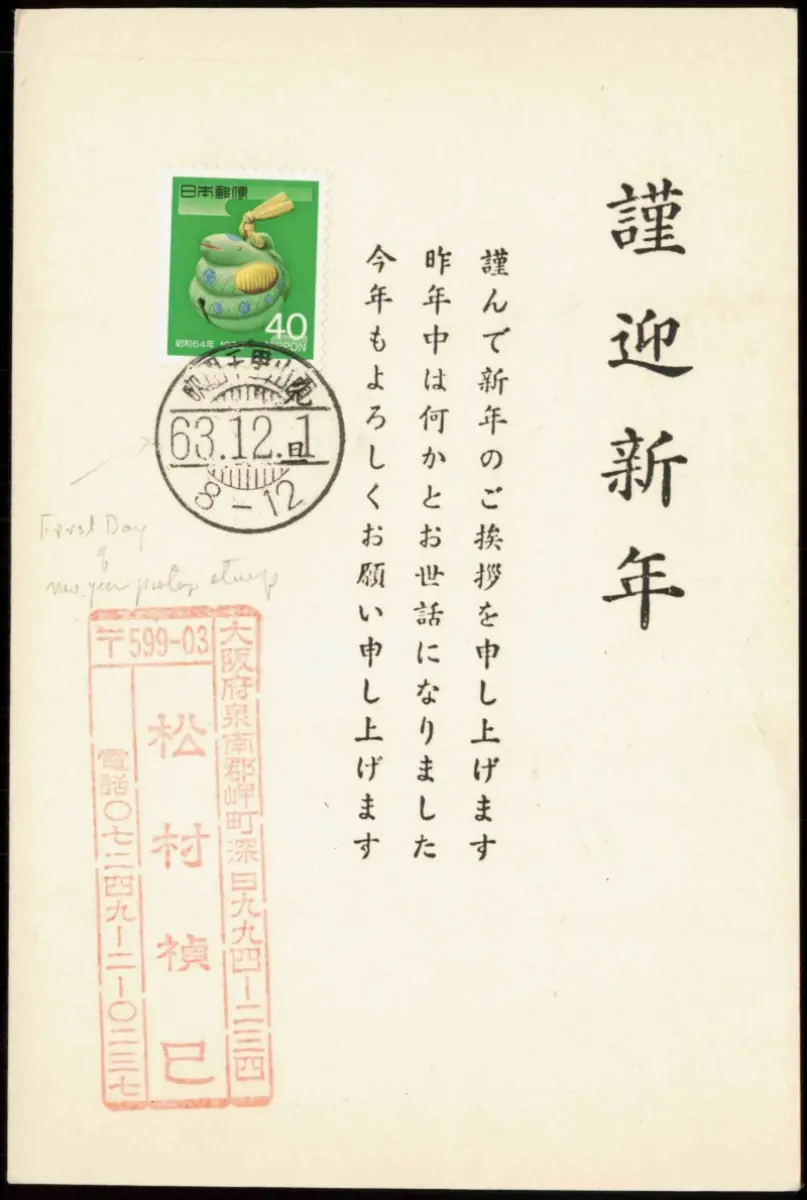 謹迎新年
謹んで新年のご挨拶を申し上げます
昨年中は何かとお世話になりました
今年もよろしくお願い申し上げます
日本郵便
40
昭和64年 NIPPON
63.12.1
8-12
First Day
of
new year postage stamp
〒599-03
大阪府泉南郡岬町深日九九四ー二三四
松村禎已
電話〇七二四九ー二ー〇二三七